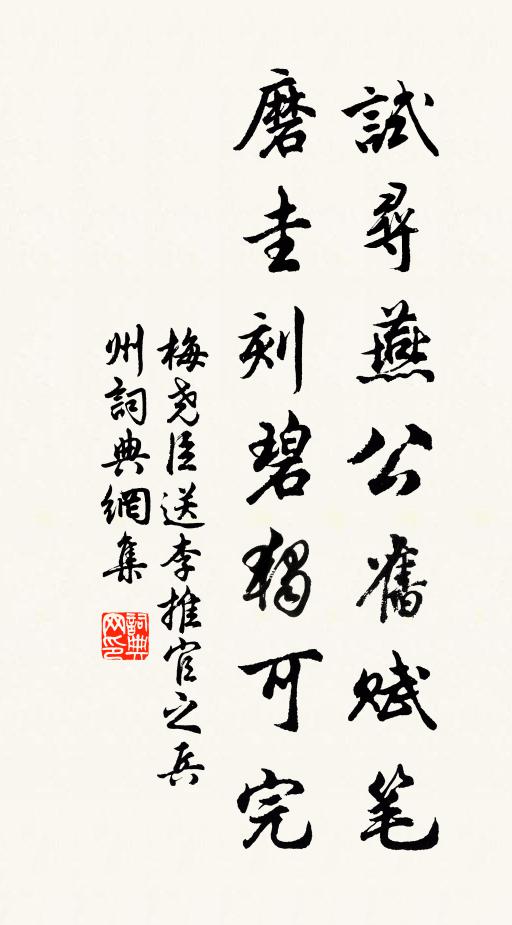 試尋燕公舊賦笔
磨圭刻碧獨可完
梅尧臣送李推官之兵
州詞典網集
詞典
网印